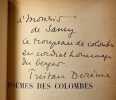 à Monsieur
de Sancy
ce troupeau de colombes
en cordial hommage
du berger
Tristan Derème
POÈMES DES COLOMBES